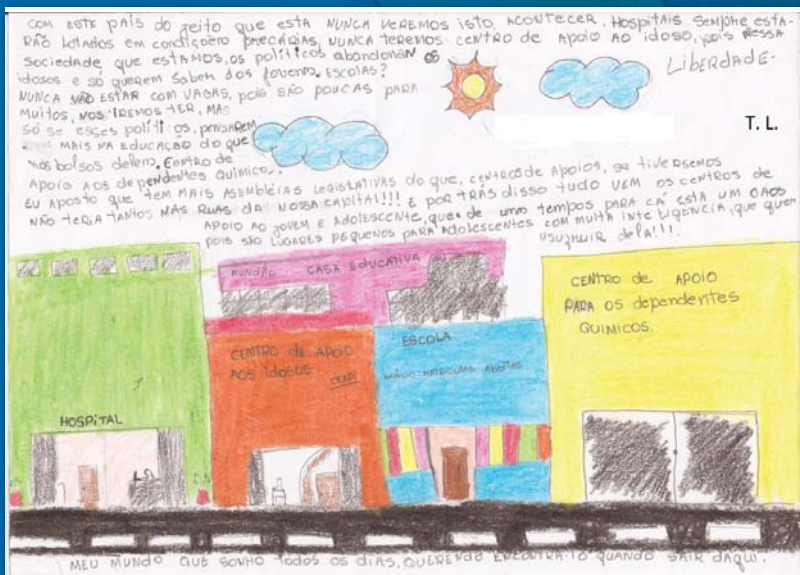 COM ESTE PAÍS DO JEITO QUE ESTA NUNCA VEREMOS ISTO, ACONTECER. HOSPITAIS SEMPRE ESTA-
RÃO LOTADOS EM PRECÁRIAS, NUNCA TEREMOS CENTRO DE APOIO AO IDOSO, POIS NESSA
SOCIEDADE QUE ESTAMOS, OS POLÍTICOS ABANDONAN OS
IDOSOS E SÓ QUEREM SABER DOS JOVENS. ESCOLAS?
NUNCA VÃO ESTAR COM VAGAS, POIS SÃO POUCAS PARA
MUITOS, NOS IREMOS TER, MAS
SÓ SE ESSES POLÍTICOS, PENSAREM
MAIS NA EDUCAÇÃO DO QUE
NOS BOLSOS DELES. CENTRO DE
APOIO AOS DEPENDENTES QUÍMICO,
EU APOSTO QUE TEM MAIS ASEMBLÉIAS LEGISLATIVAS DO QUE, CENTROS DE APOIOS, SE TIVERSEMOS
NÃO TERIA TANTOS NAS RUAS DA NOSSA CAPITAL!!! E POR TRÁS DISSO TUDO VEM OS CENTROS DE
APOIO AO JOVEM E ADOLESCENTE, QUE DE UNS TEMPOS PARA CÁ ESTA UM CAOS
POIS SÃO LUGARES PEQUENOS PARA ADOLESCENTES COM MUITA INTELIGENCIA, QUE QUER
USUFRUIR DELA!!!.
LIBERDADE.
T. L.
MUNDÃO CASA EDUCATIVA
CENTRO DE APOIO
PARA OS DEPENDENTES
QUIMICOS.
CENTRO DE APOIO
AOS IDOSOS
CEAPI
ESCOLA
MATRICULAS ABERTAS
HOSPITAL
MEU MUNDO QUE SONHO TODOS OS DIAS, QUERENDO ENCONTRA-LO QUANDO SAIR DAQUI.